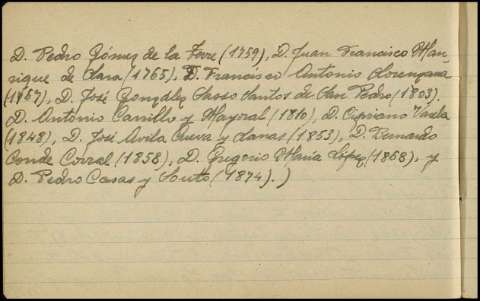 D. Pedro Gómez de la Torre (1759), D. Juan Francisco Man-
rique de Lara (1765), D. Francisco Antonio Lorenzana
(1767), D. José González Laso Santos de San Pedro (1803).
D. Antonio Carrillo y Mayoral (1810), D. Cipriano Varela
(1848), D. José Avila Cueva y Lamas (1853), D. Fernando
Conde Corral (1858), D. Gregorio María López (1868), y
D. Pedro Casas y Souto (1874).)